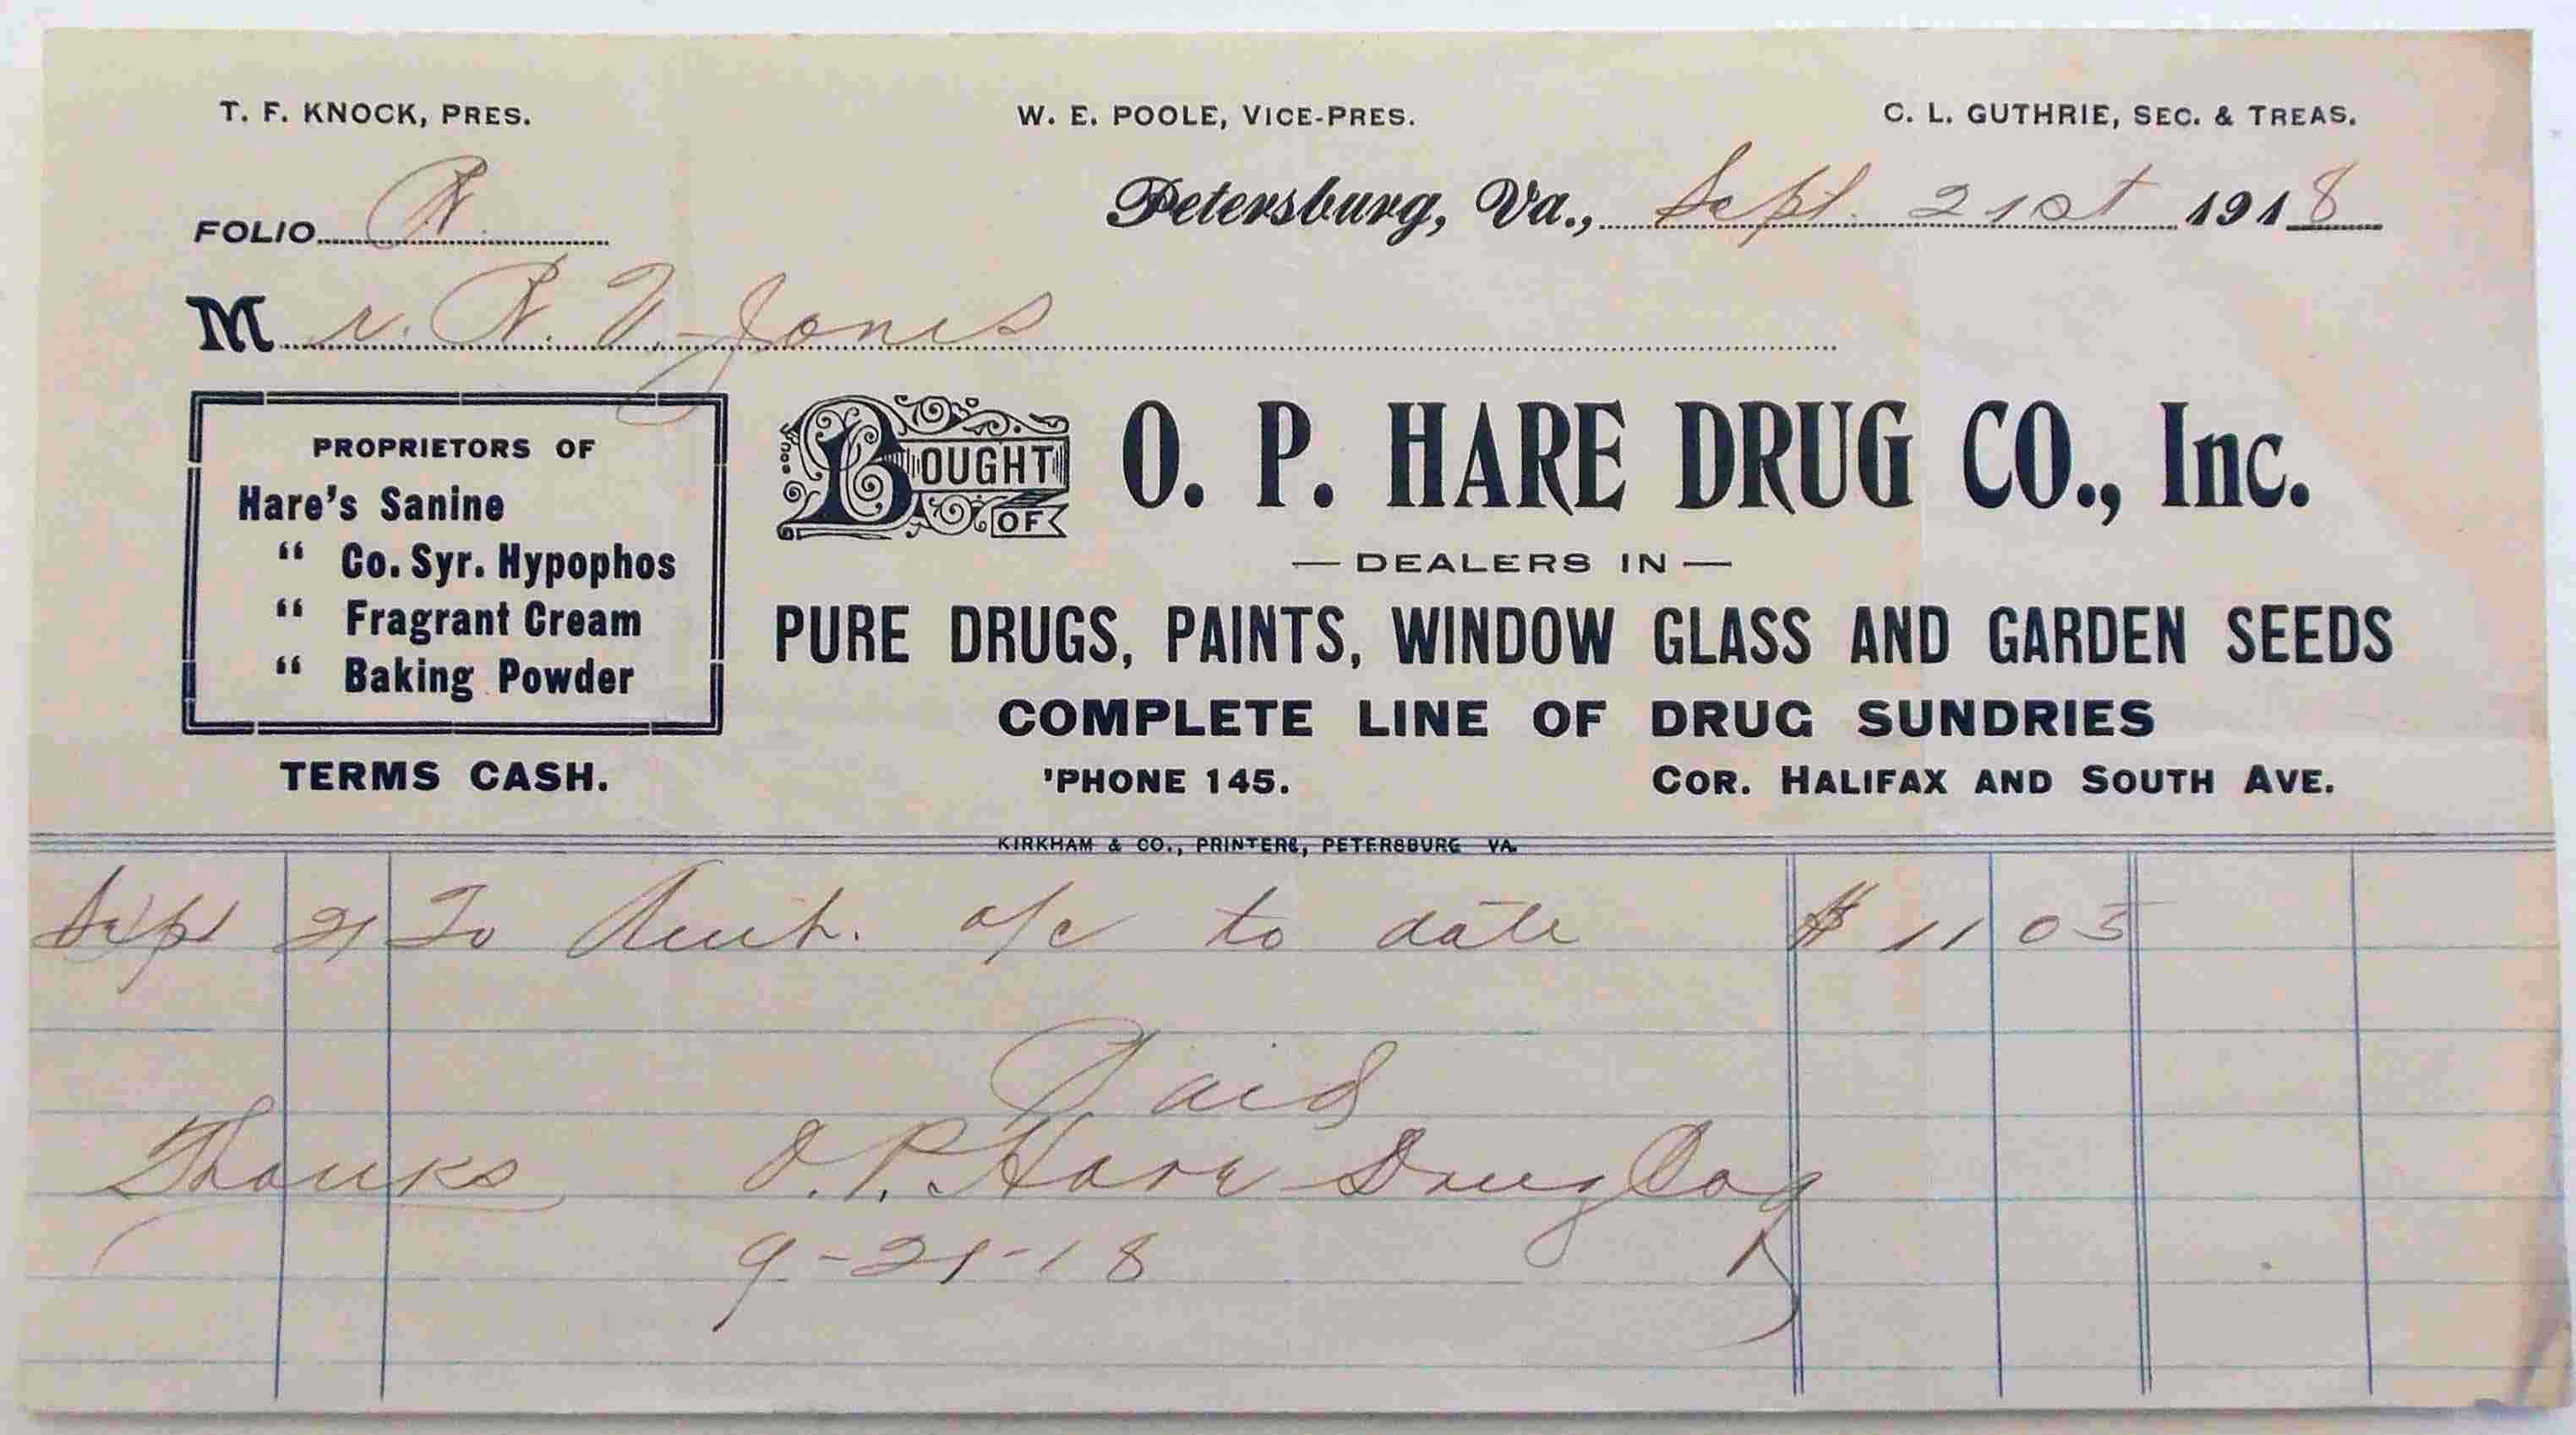 T. F. KNOCK, PRES. W. E. POOLE, VICE-PRES. C. L. GUTHRIE, SEC. & TREAS.
FOLIO Petersburg, Va., Sept. 21st 1918
Mr. Jones
PROPRIETORS OF
Hare's Sanine
“ Co. Syr. Hypophos
“ Fragrant Cream
“ Baking Powder
TERMS CASH.
BOUGHT OF O. P. HARE DRUG CO., Inc.
— DEALERS IN —
PURE DRUGS, PAINTS, WINDOW GLASS AND GARDEN SEEDS
COMPLETE LINE OF DRUG SUNDRIES
'PHONE 145. COR. HALIFAX AND SOUTH AVE.
KIRKHAM & CO., PRINTERS, PETERSBURG VA.
Sept 21 To Amt. a/c to date $ 11 05
Paid
Thanks O. P. Hare Drug Co
9-21-18